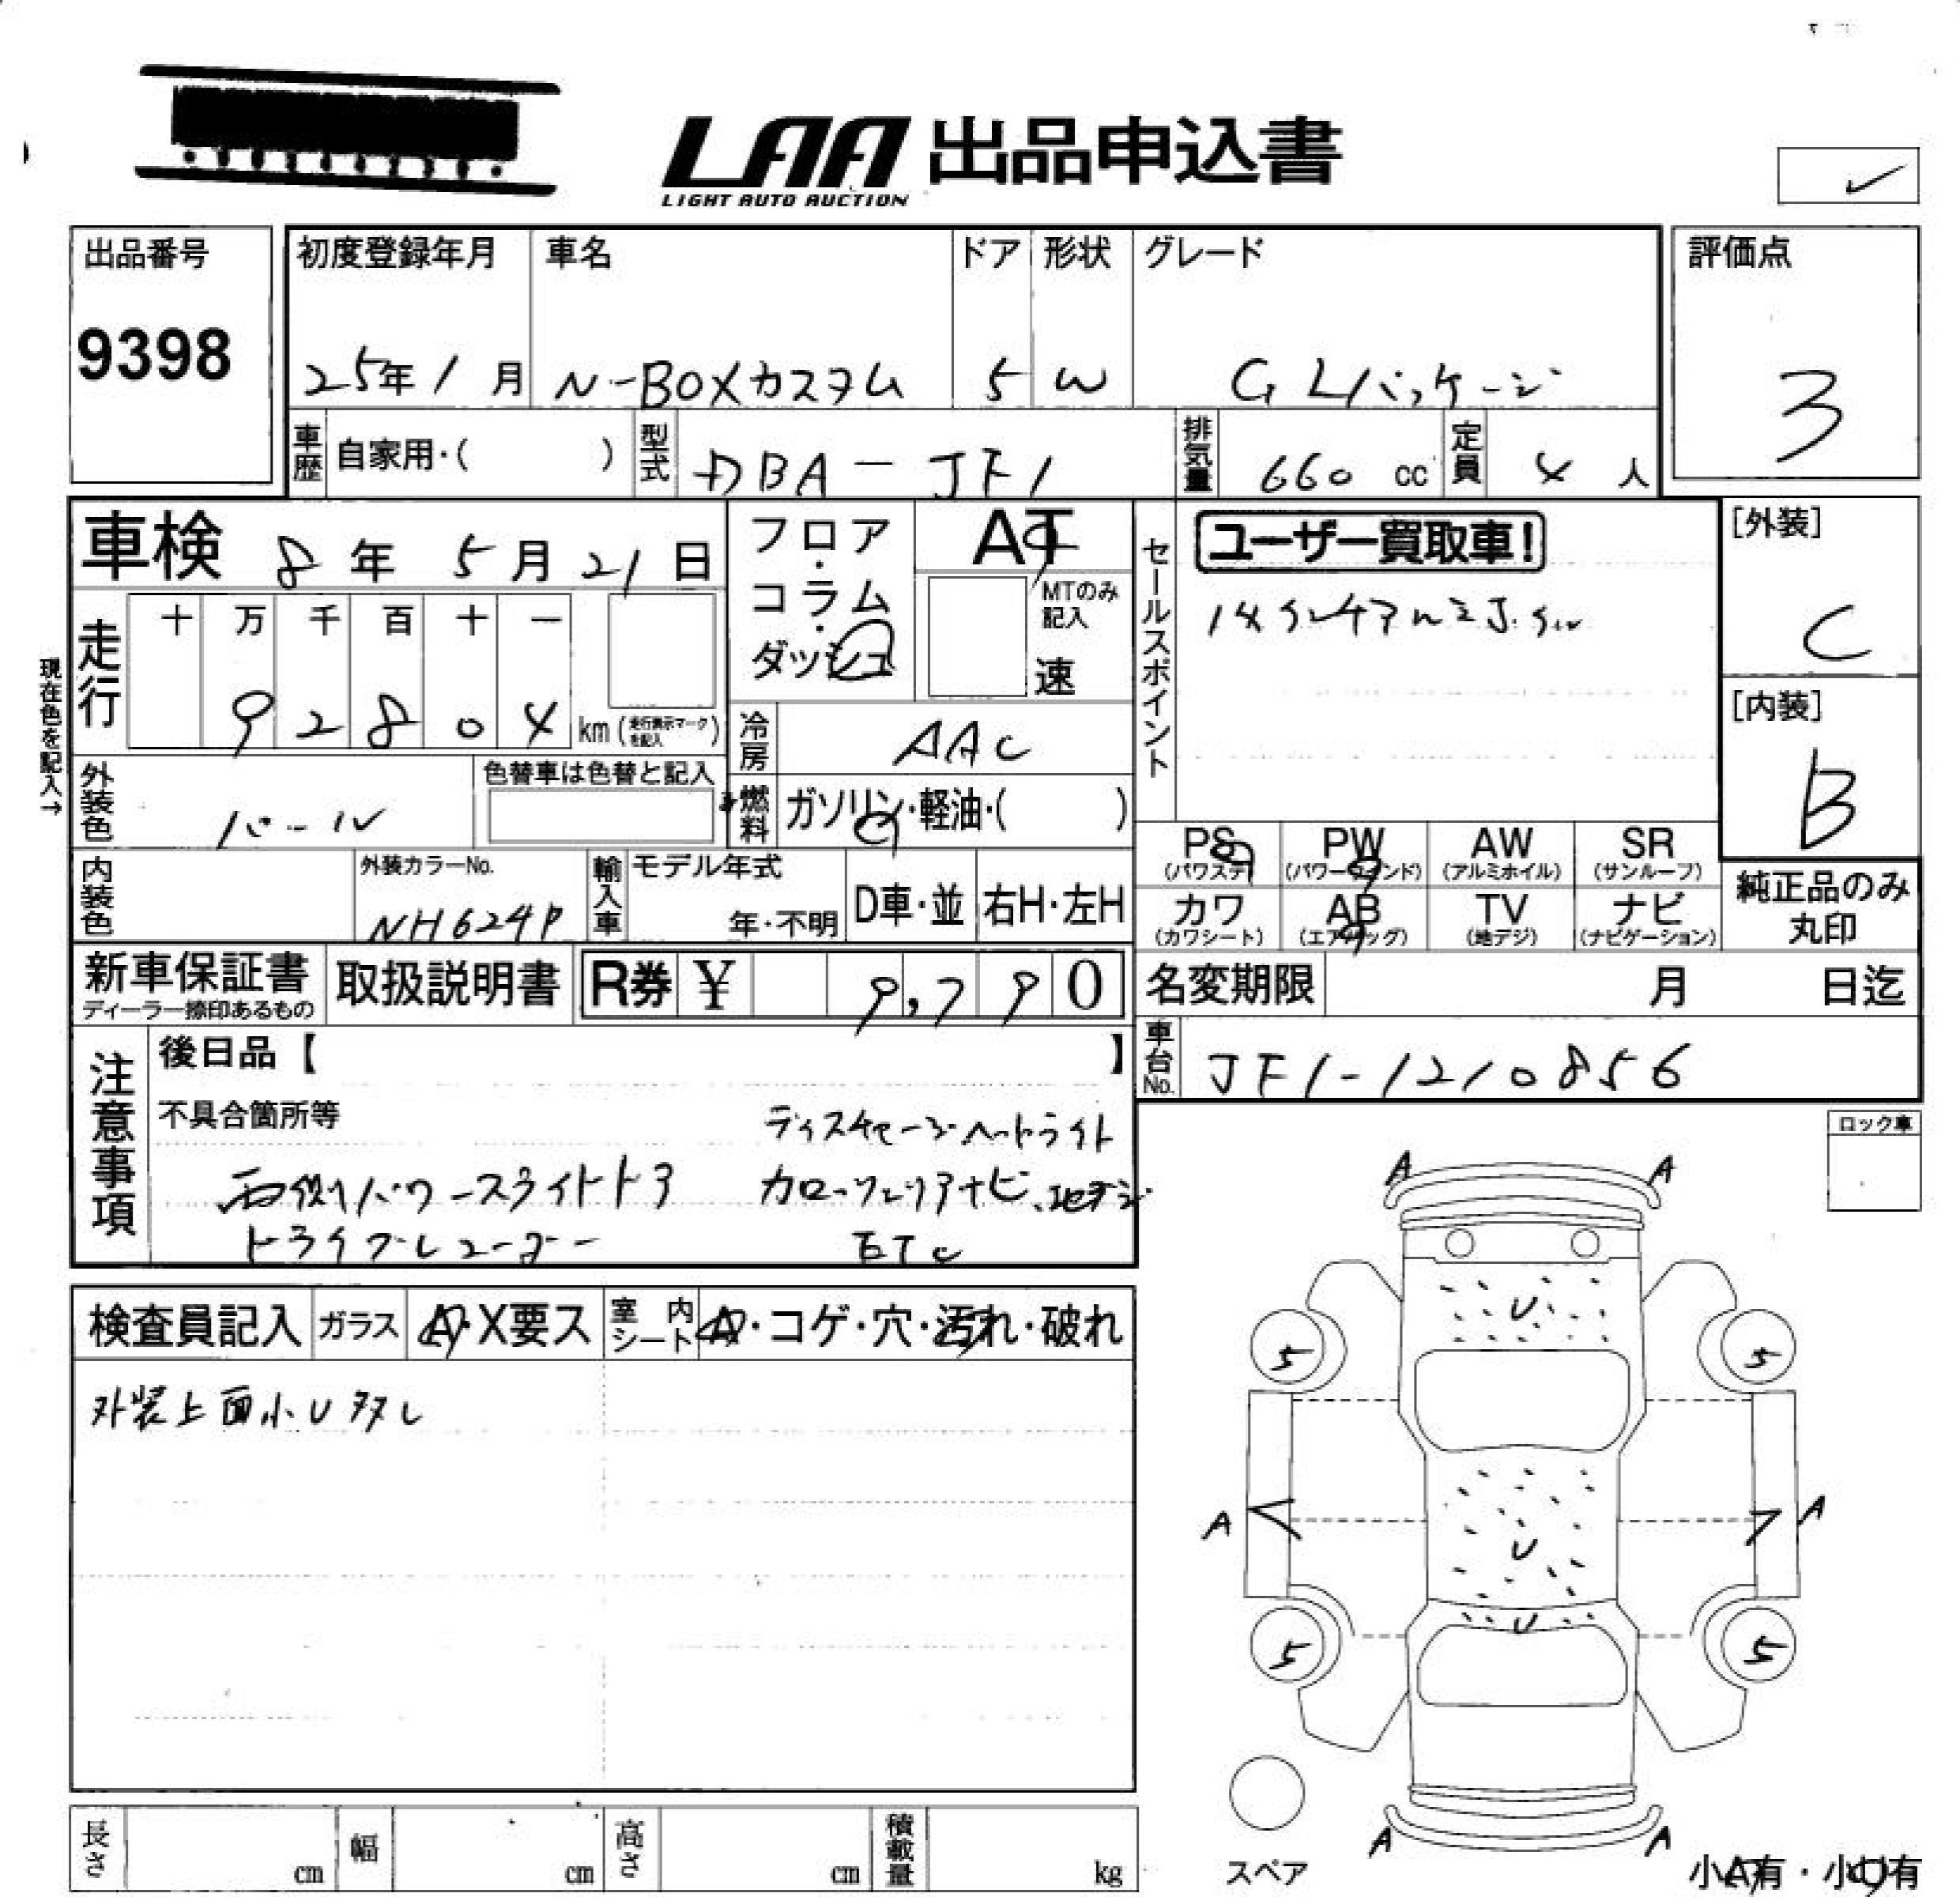 LAA 出品申込書
LIGHT AUTO AUCTION
出品番号
9398
初度登録年月
25年1月
車名
N-BOXカスタム
ドア
5
形状
W
グレード
G Lパッケージ
評価点
3
車歴 自家用・( )
型式 DBA-JF1
排気量 660 cc
定員 4 人
車検 8年 5月 21日
フロア・コラム・ダッシュ
AT
MTのみ記入
速
セールスポイント
ユーザー買取車!
[外装]
C
[内装]
B
現在色を記入→
走行
十 万 千 百 十 一
9 2 8 0 4 km (走行表示マークを記入)
冷房 AAC
外装色 パール
色替車は色替と記入
燃料 ガソリン・軽油・( )
PS (パワステ)
PW (パワーウインド)
AW (アルミホイル)
SR (サンルーフ)
カワ (カワシート)
AB (エアバッグ)
TV (地デジ)
ナビ (ナビゲーション)
純正品のみ丸印
内装色
外装カラーNo.
NH624P
輸入車
モデル年式
年・不明
D車・並
右H・左H
新車保証書
ディーラー捺印あるもの
取扱説明書
R券 ¥ 9,790
名変期限 月 日迄
車台No. JF1-1210856
注意事項
後日品【 】
不具合箇所等
ディスチャージヘッドライト
両側パワースライドドア カロッツェリアナビ、地デジ
ドライブレコーダー ETC
ロック車
検査員記入
ガラス A・X要ス
室内シート A・コゲ・穴・汚れ・破れ
外装上面小U多し
A A
U
5 5
A A
U
U
5 5
スペア
A A
小A有・小U有
長さ cm
幅 cm
高さ cm
積載量 kg